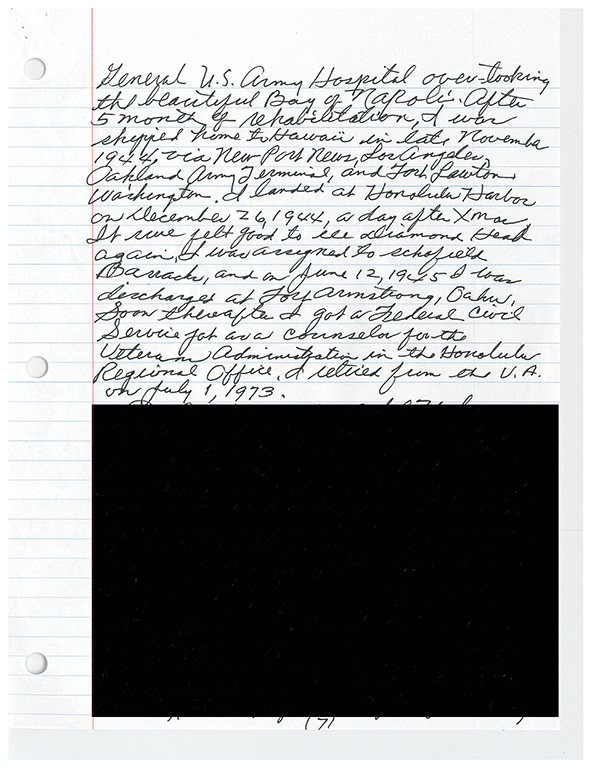 General U.S. Army Hospital over-looking
the beautiful Bay of Napoli. After
5 months of rehabilitation, I was
shipped home to Hawaii in late November
1944, via New Port News, Los Angeles,
Oakland Army Terminal, and Fort Lawton
Washington. I landed at Honolulu Harbor
on December 26, 1944, a day after Xmas
It sure felt good to see Diamond Head
again, I was assigned to Schofield
Barracks, and on June 12, 1945 I was
discharged at Fort Armstrong, Oahu,
Soon thereafter I got a Federal Civil
Service job as a counselor for the
Veterans Administration in the Honolulu
Regional Office, I retired from the V.A.
on July 1, 1973.
(7)